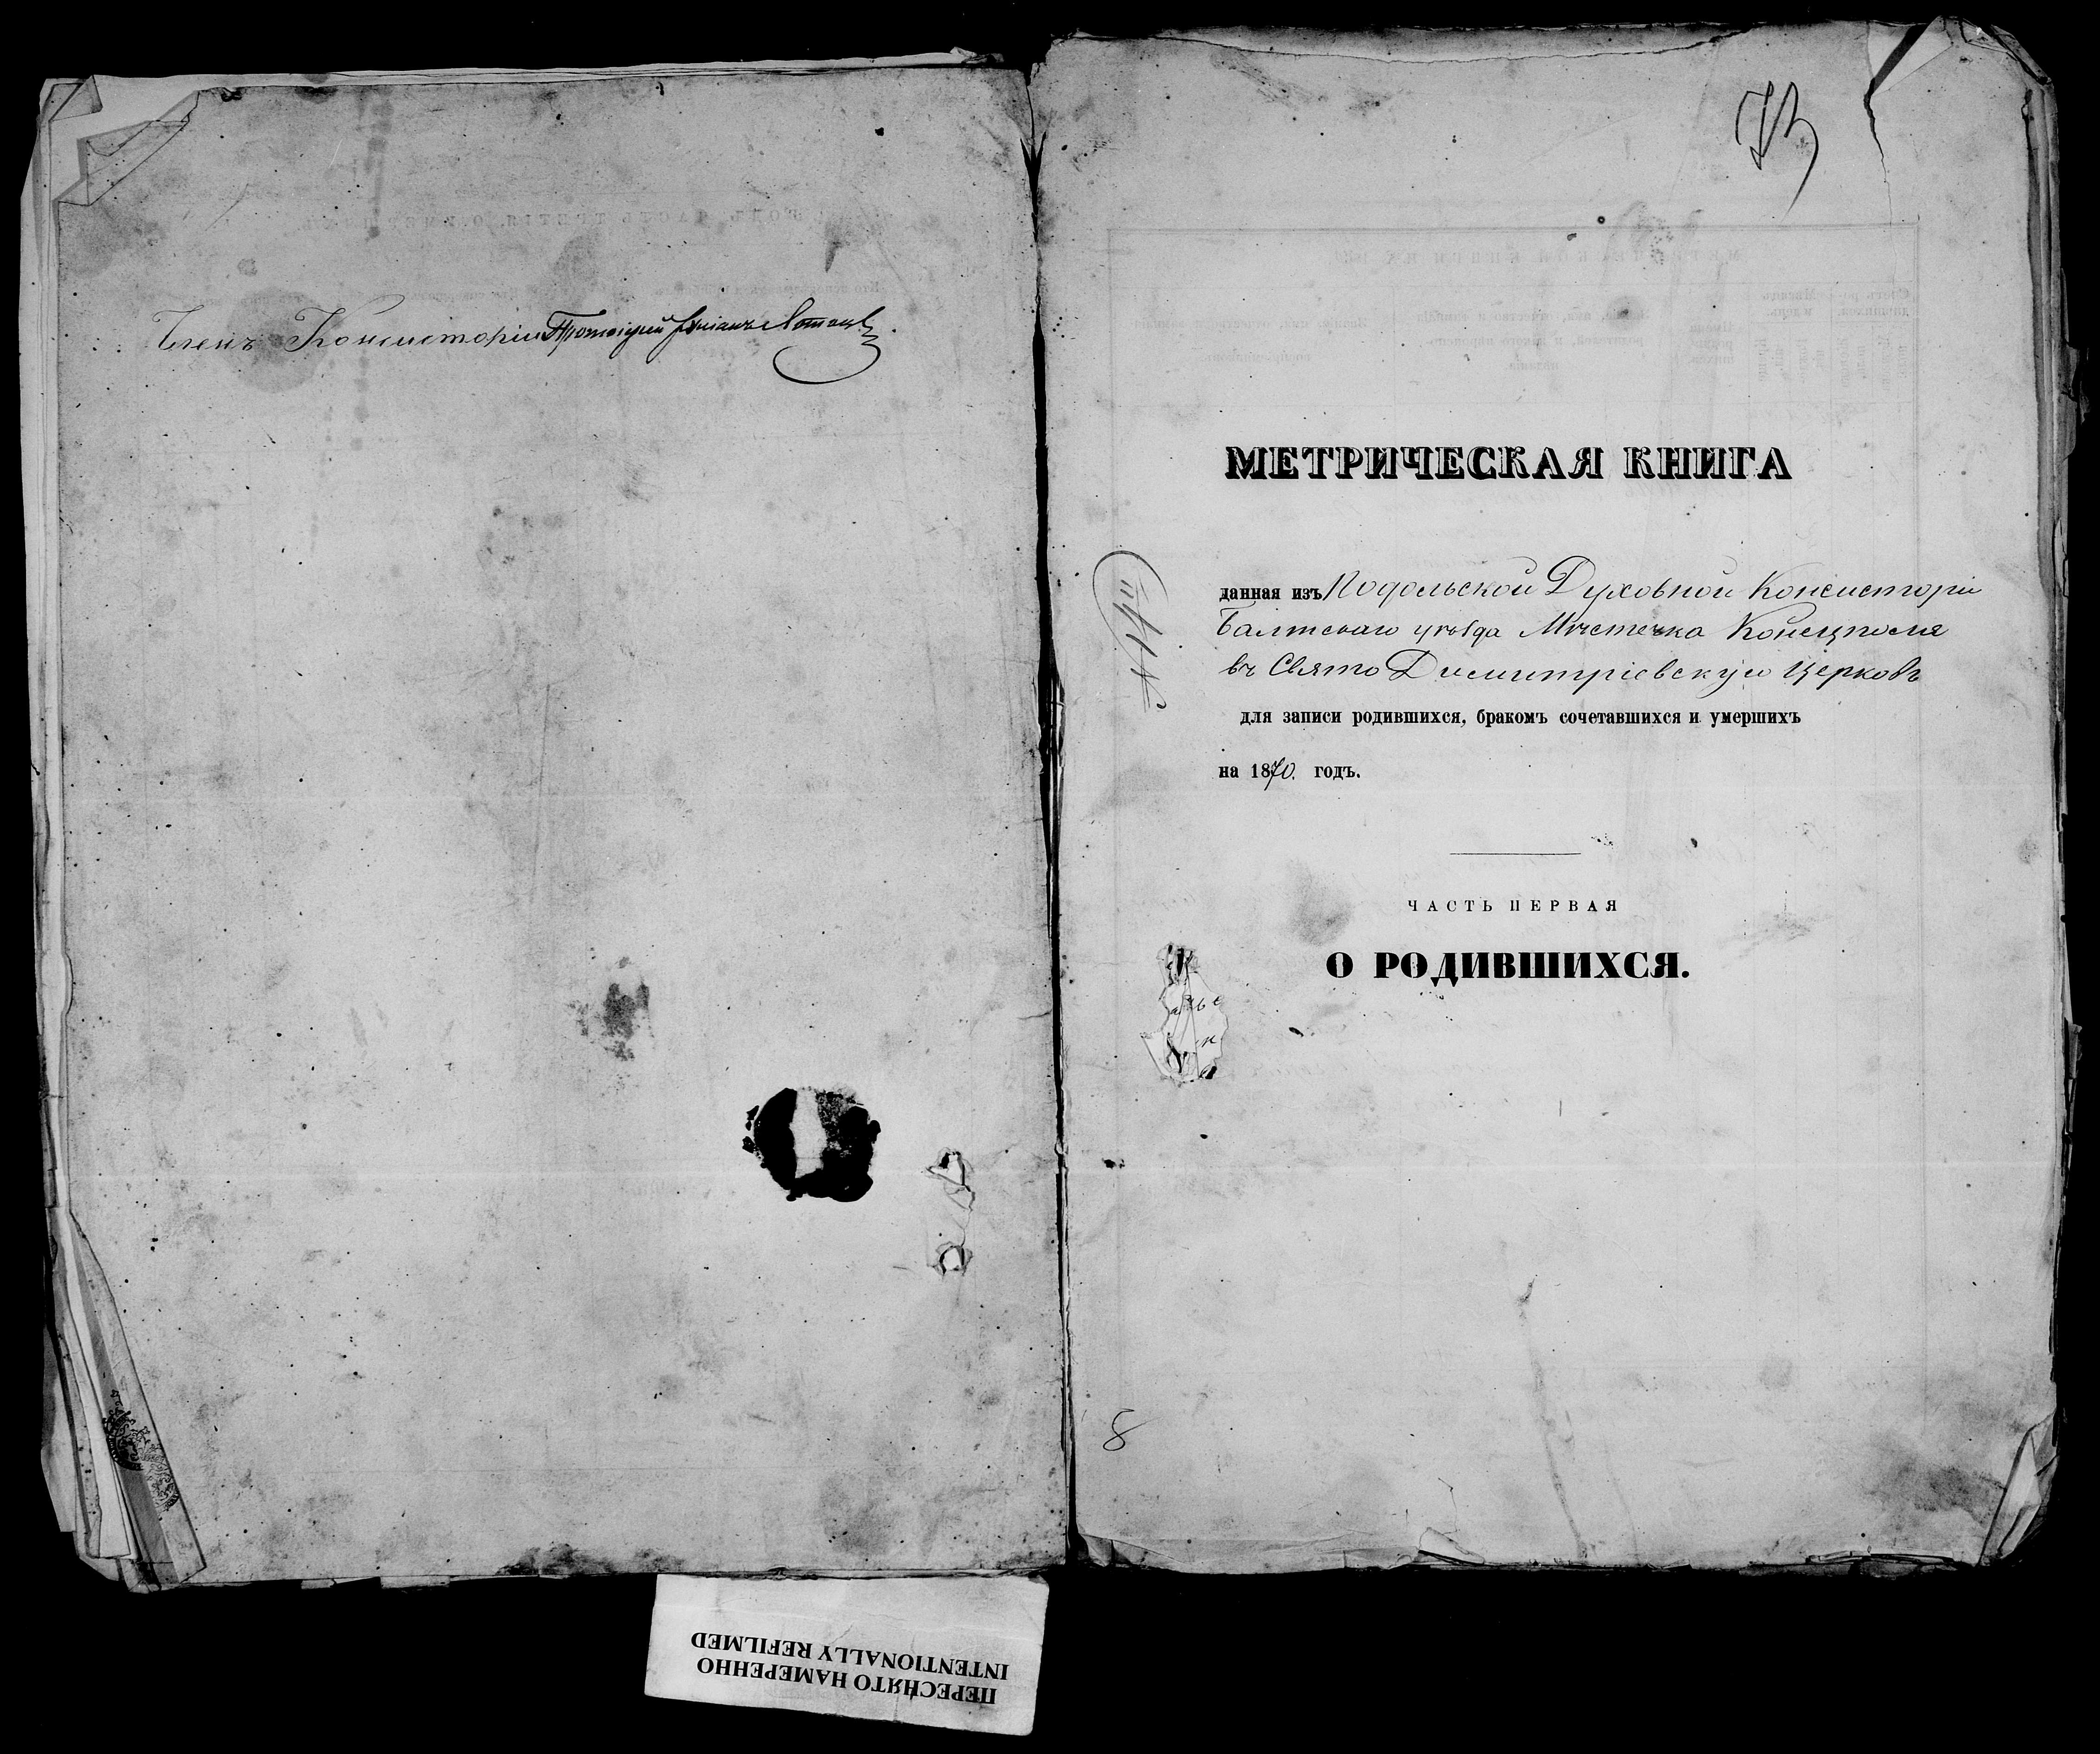 Членъ Консисторіи Протоіерей
73
МЕТРИЧЕСКАЯ КНИГА
данная изъ Подольской Духовной Консисторіи
Балтскаго уѣзда Мѣстечка Конецполя
въ Свято Димитріевскую Церковь
для записи родившихся, бракомъ сочетавшихся и умершихъ
на 1870. годъ.
ЧАСТЬ ПЕРВАЯ
О РОДИВШИХСЯ.
8
ПЕРЕСНЯТО НАМЕРЕННО
INTENTIONALLY REFILMED